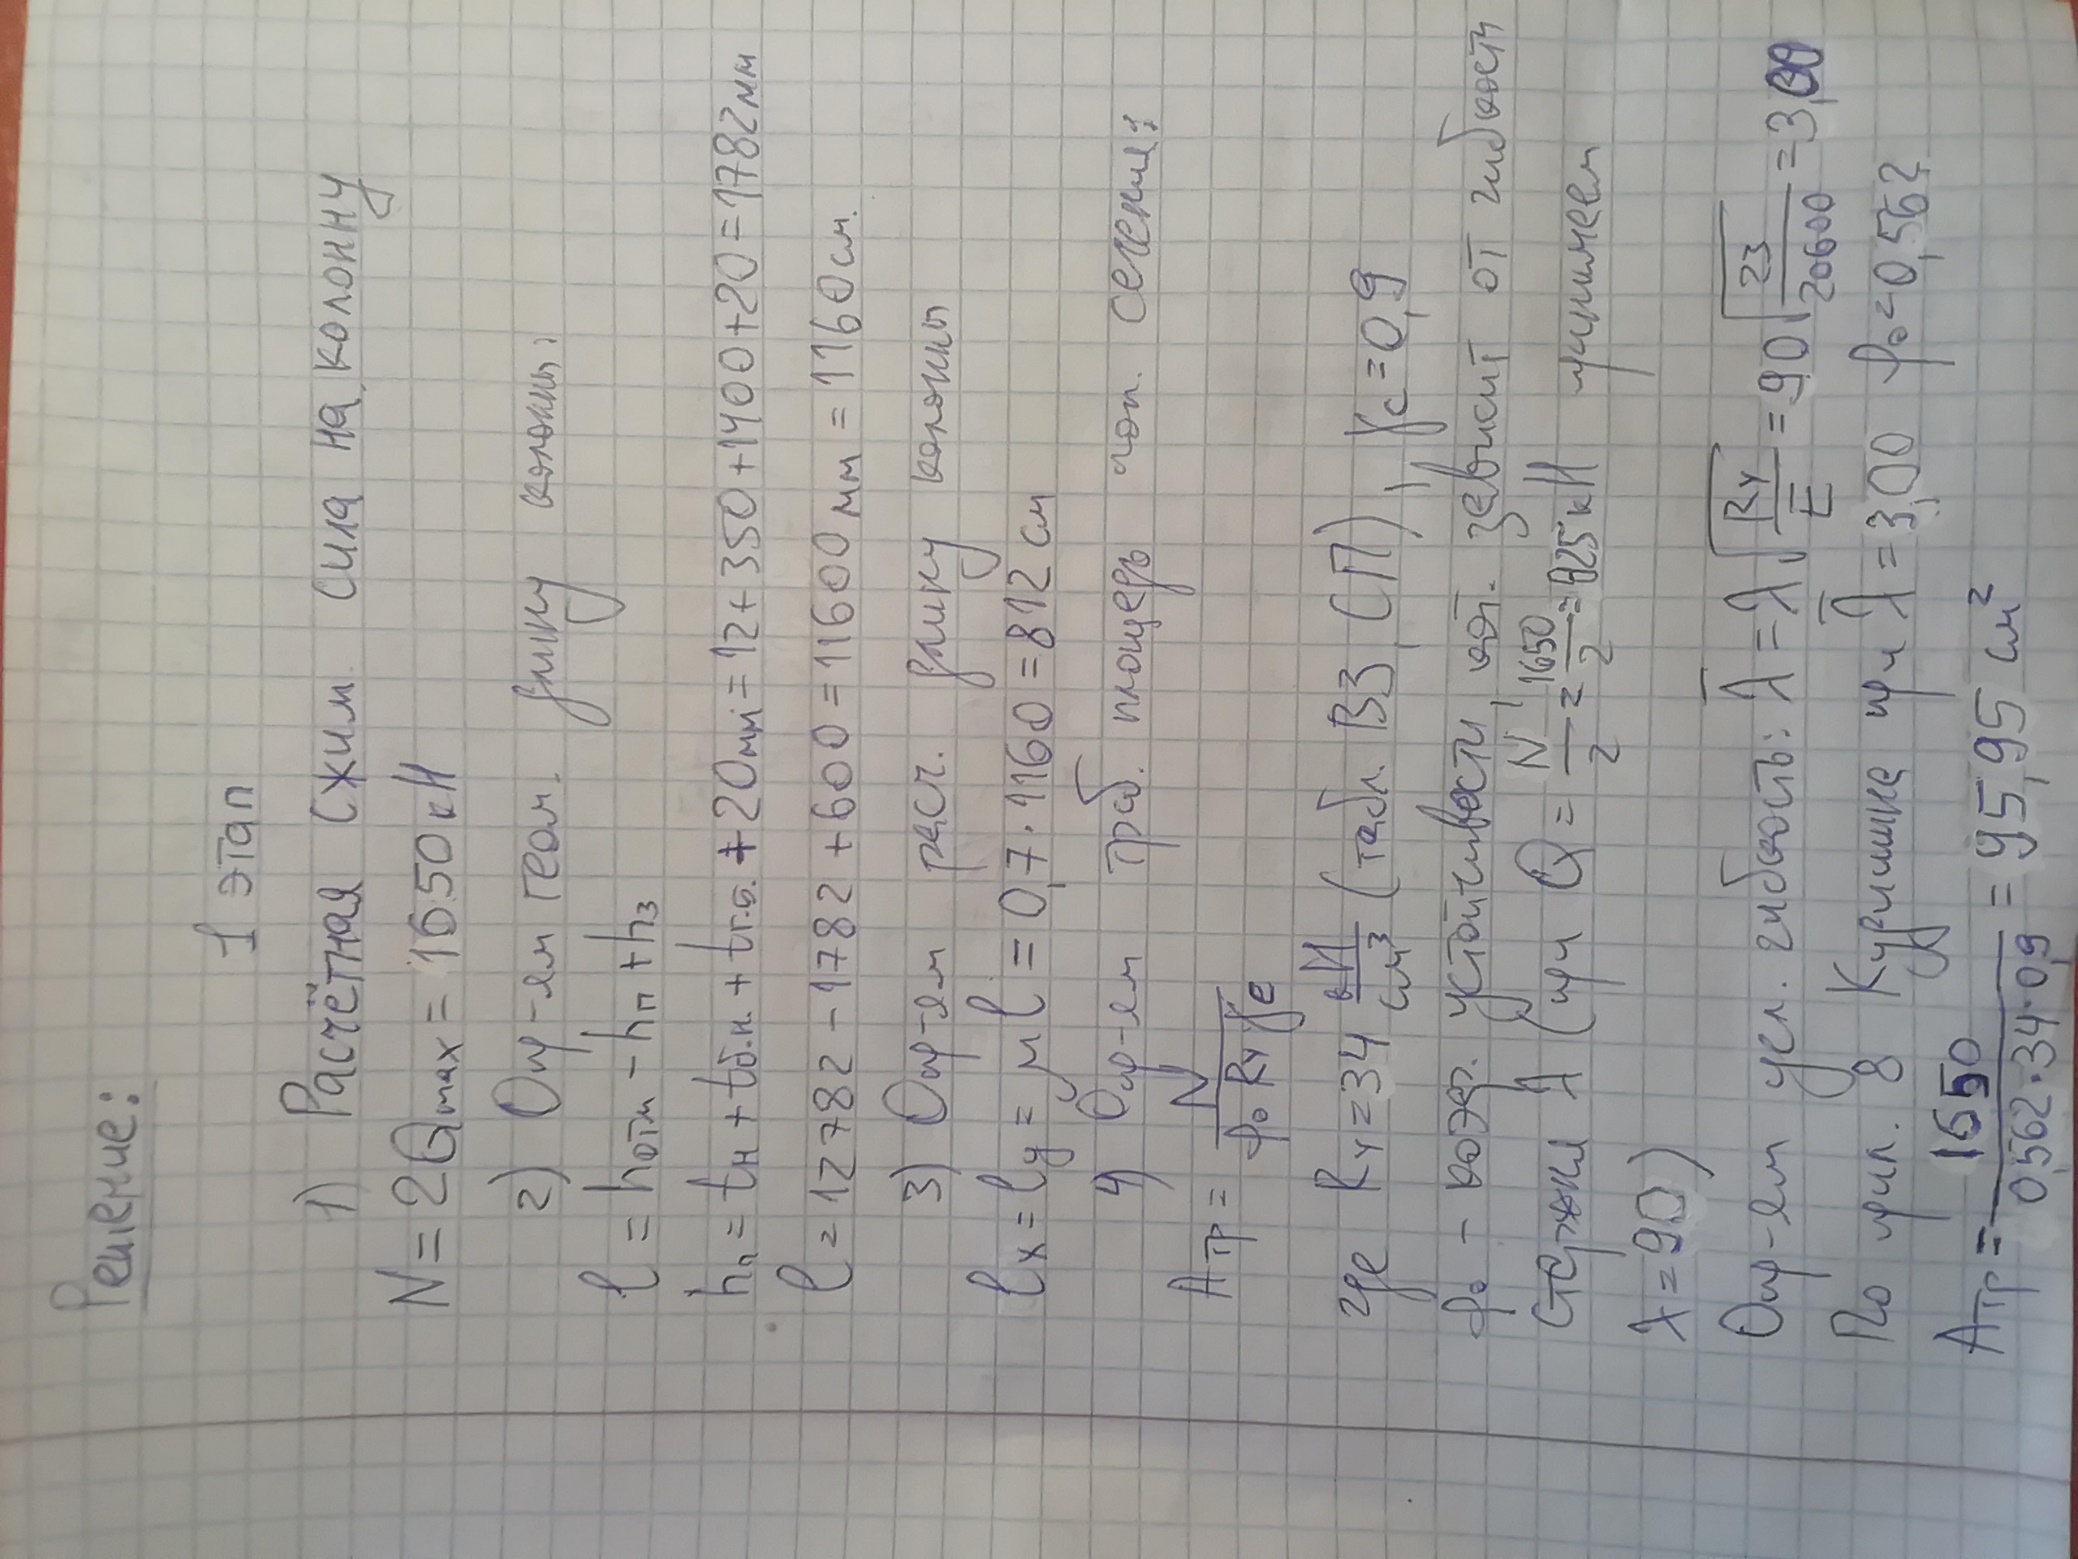 Решение:
1 этап
1) Расчётная сжим. сила на колонну
N = 2Qmax = 1650 кН
2) Опр-ям геом. длину колонны:
l = hотм - hп + hз
hп = tн + tб.н. + tг.б. + 20мм = 12 + 350 + 1400 + 20 = 1782 мм
l = 12782 - 1782 + 600 = 11600 мм = 1160 см.
3) Опр-ям расч. длину колонны
lx = ly = μl = 0,7 · 1160 = 812 см
4) Опр-ям треб. площадь поп. сечения:
Aтр = N / φ₀ Ry γc
где Ry = 34 кН/см³ (табл. В3, СП), γc = 0,9
φ₀ - коэф. устойчивости, кот. зависит от гибкости
стержня λ (при Q = N/2 = 1650/2 = 825 кН принимаем
λ = 90)
Опр-ям усл. гибкость: λ̅ = λ√(Ry/E) = 90√(23/20600) = 3,00
По прил. 8 Кудишина при λ̅ = 3,00 φ₀ = 0,562
Aтр = 1650 / 0,562·34·0,9 = 95,95 см²